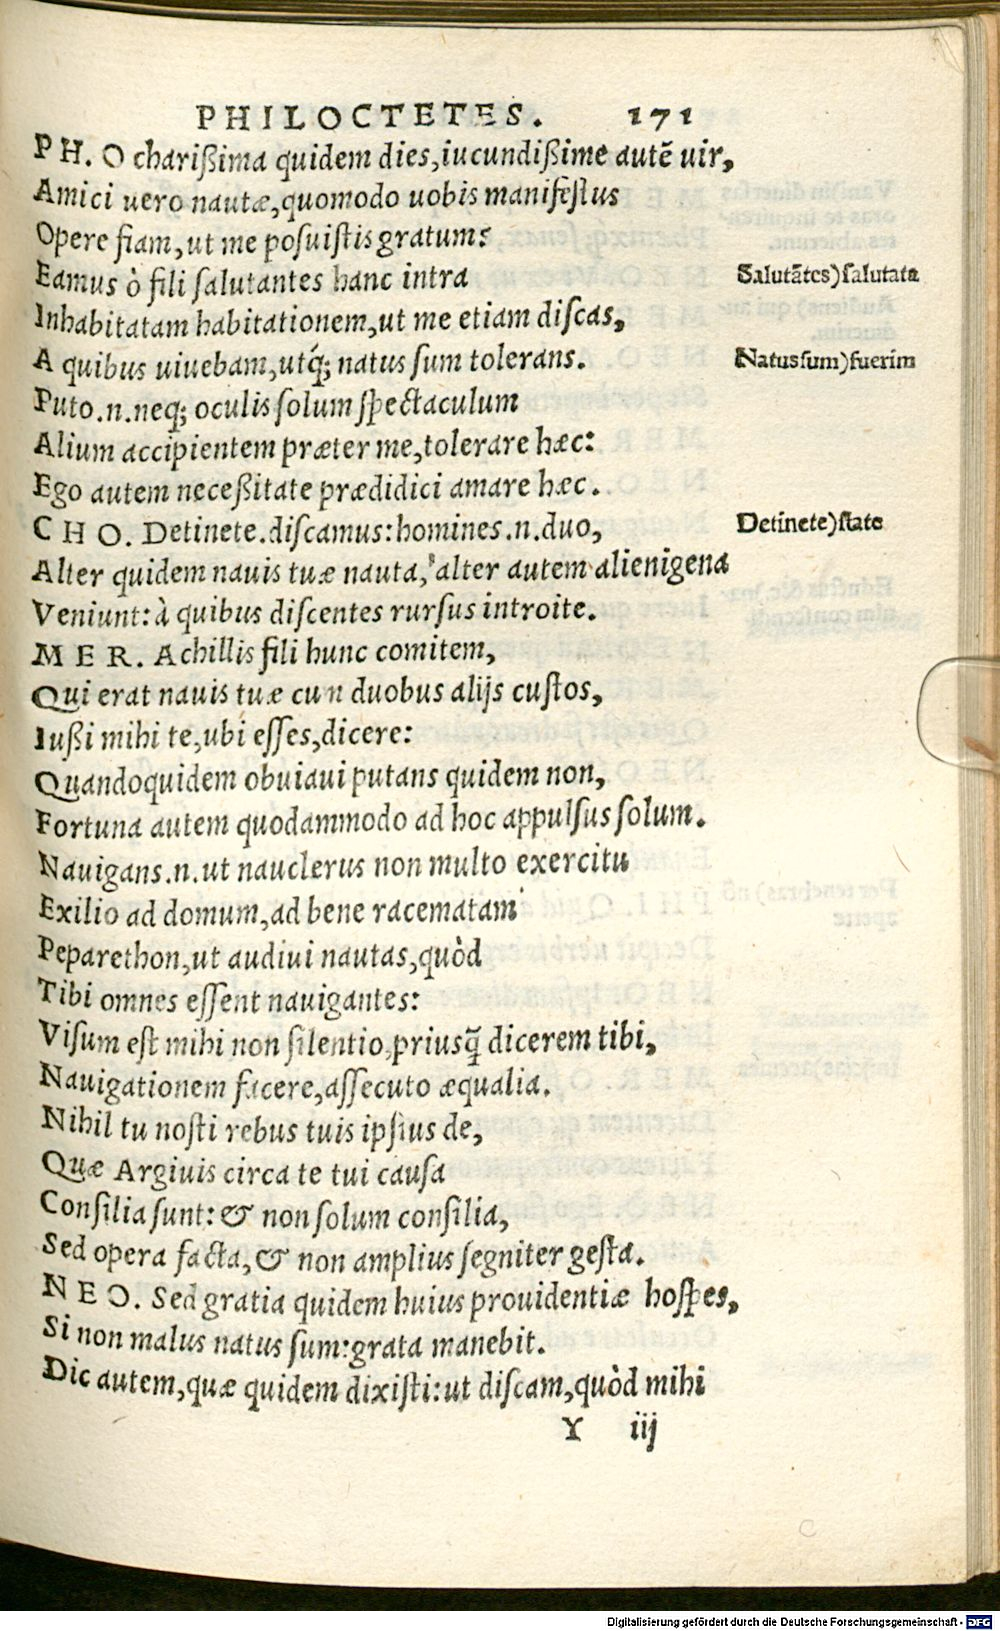 PHILOCTETES. 171
PH. O charißima quidem dies,iucundißime autē uir,
Amici uero nautæ,quomodo uobis manifestus
Opere fiam,ut me posuistis gratum?
Eamus ò fili salutantes hanc intra
Salutātes)salutata
Inhabitatam habitationem,ut me etiam discas,
A quibus uiuebam,utq́; natus sum tolerans.
Natus sum)fuerim
Puto.n.neq; oculis solum spectaculum
Alium accipientem præter me,tolerare hæc:
Ego autem neceßitate prædidici amare hæc.
CHO. Detinete.discamus:homines.n.duo,
Detinete)state
Alter quidem nauis tuæ nauta, alter autem alienigena
Veniunt:à quibus discentes rursus introite.
MER. Achillis fili hunc comitem,
Qui erat nauis tuæ cun duobus alijs custos,
Iußi mihi te,ubi esses,dicere:
Quandoquidem obuiaui putans quidem non,
Fortuna autem quodammodo ad hoc appulsus solum.
Nauigans.n.ut nauclerus non multo exercitu
Exilio ad domum,ad bene racematam
Peparethon,ut audiui nautas,quòd
Tibi omnes essent nauigantes:
Visum est mihi non silentio,priusq̃ dicerem tibi,
Nauigationem facere,assecuto æqualia.
Nihil tu nosti rebus tuis ipsius de,
Quæ Argiuis circa te tui causa
Consilia sunt:& non solum consilia,
Sed opera facta,& non amplius segniter gesta.
NEO. Sed gratia quidem huius prouidentiæ hospes,
Si non malus natus sum:grata manebit.
Dic autem,quæ quidem dixisti:ut discam,quòd mihi
Y iij
Digitalisierung gefördert durch die Deutsche Forschungsgemeinschaft - DFG